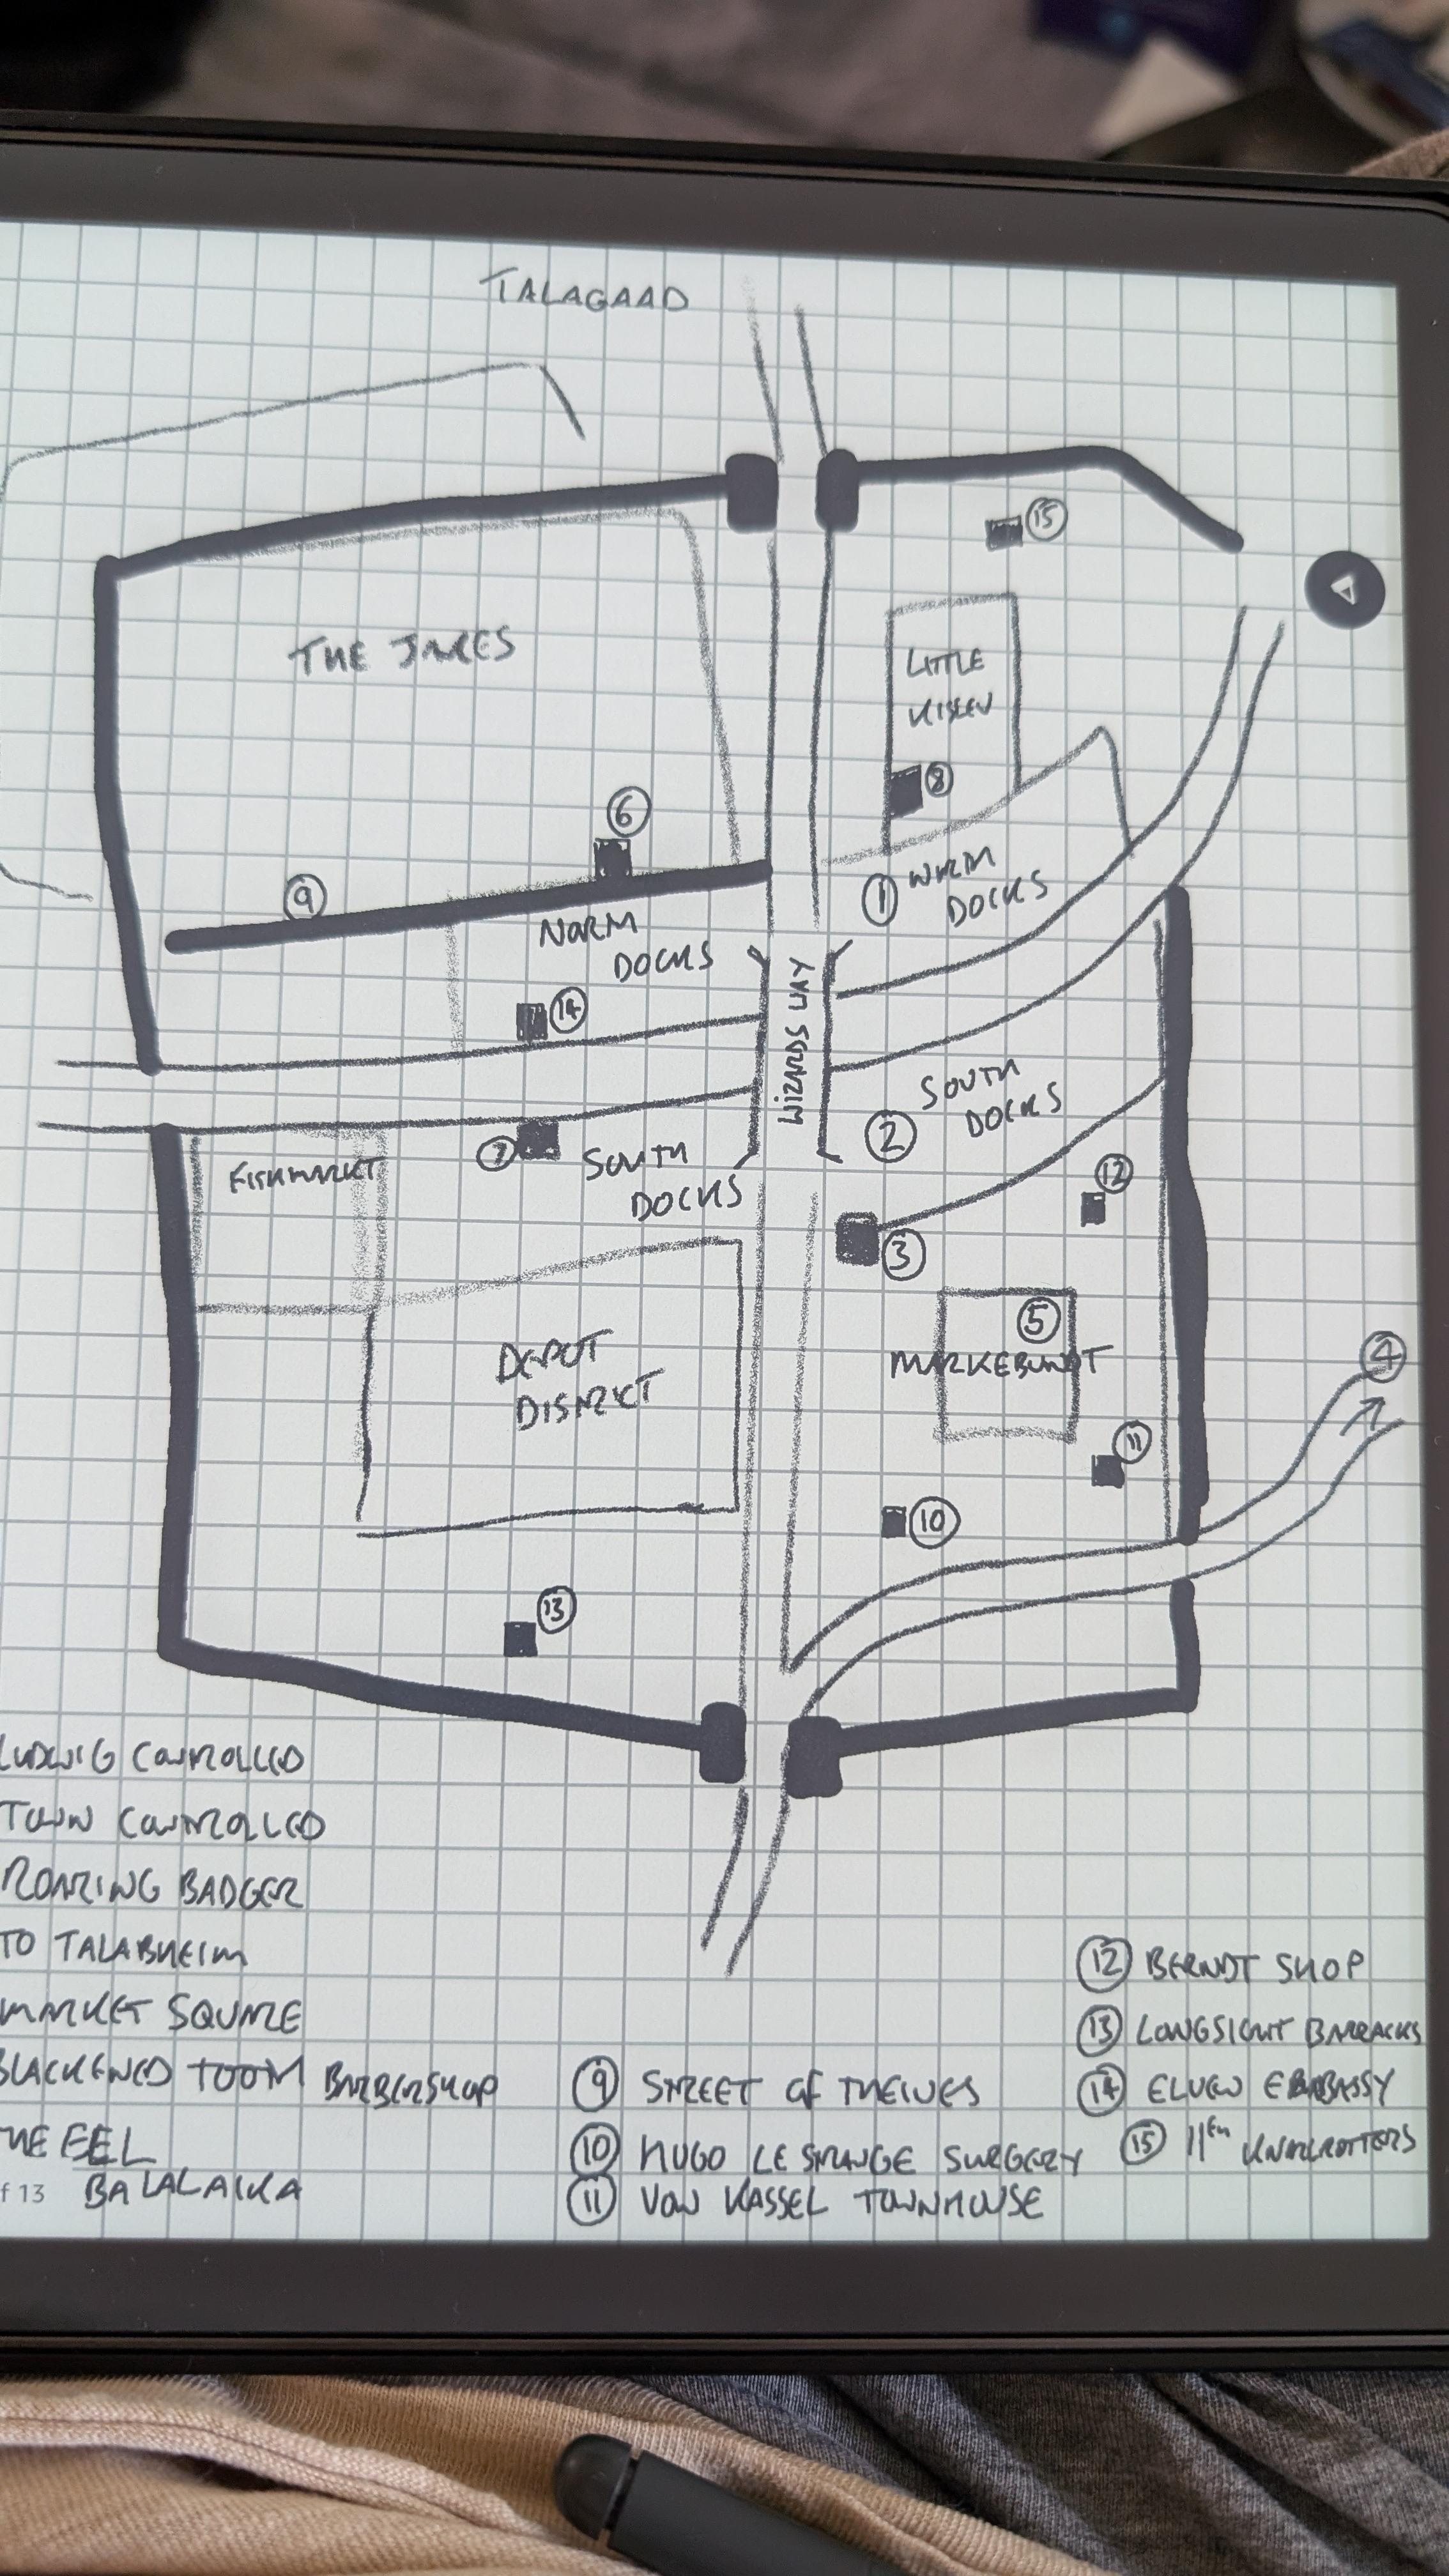 TALAGAAD
15
THE JAKES
LITTLE
KISLEV
8
6
9
1 NORTH
DOCKS
NORTH
DOCKS
WIZARDS WAY
14
SOUTH
DOCKS
2
7
SOUTH
DOCKS
FISHMARKT
12
3
5
MARKEBUNDT
4
DEPOT
DISTRICT
11
10
13
LUDWIG CONTROLLED
TOWN CONTROLLED
ROARING BADGER
TO TALABHEIM
MARKET SQUARE
BLACKENED TOOTH BARBERSHOP
HE EEL
f 13 BALALAIKA
9 STREET OF THEIVES
10 HUGO LESTRANGE SURGERY
11 VON KASSEL TOWNHOUSE
12 BERNDT SHOP
13 LONGSIGHT BARRACKS
14 ELVEN EMBASSY
15 11TH